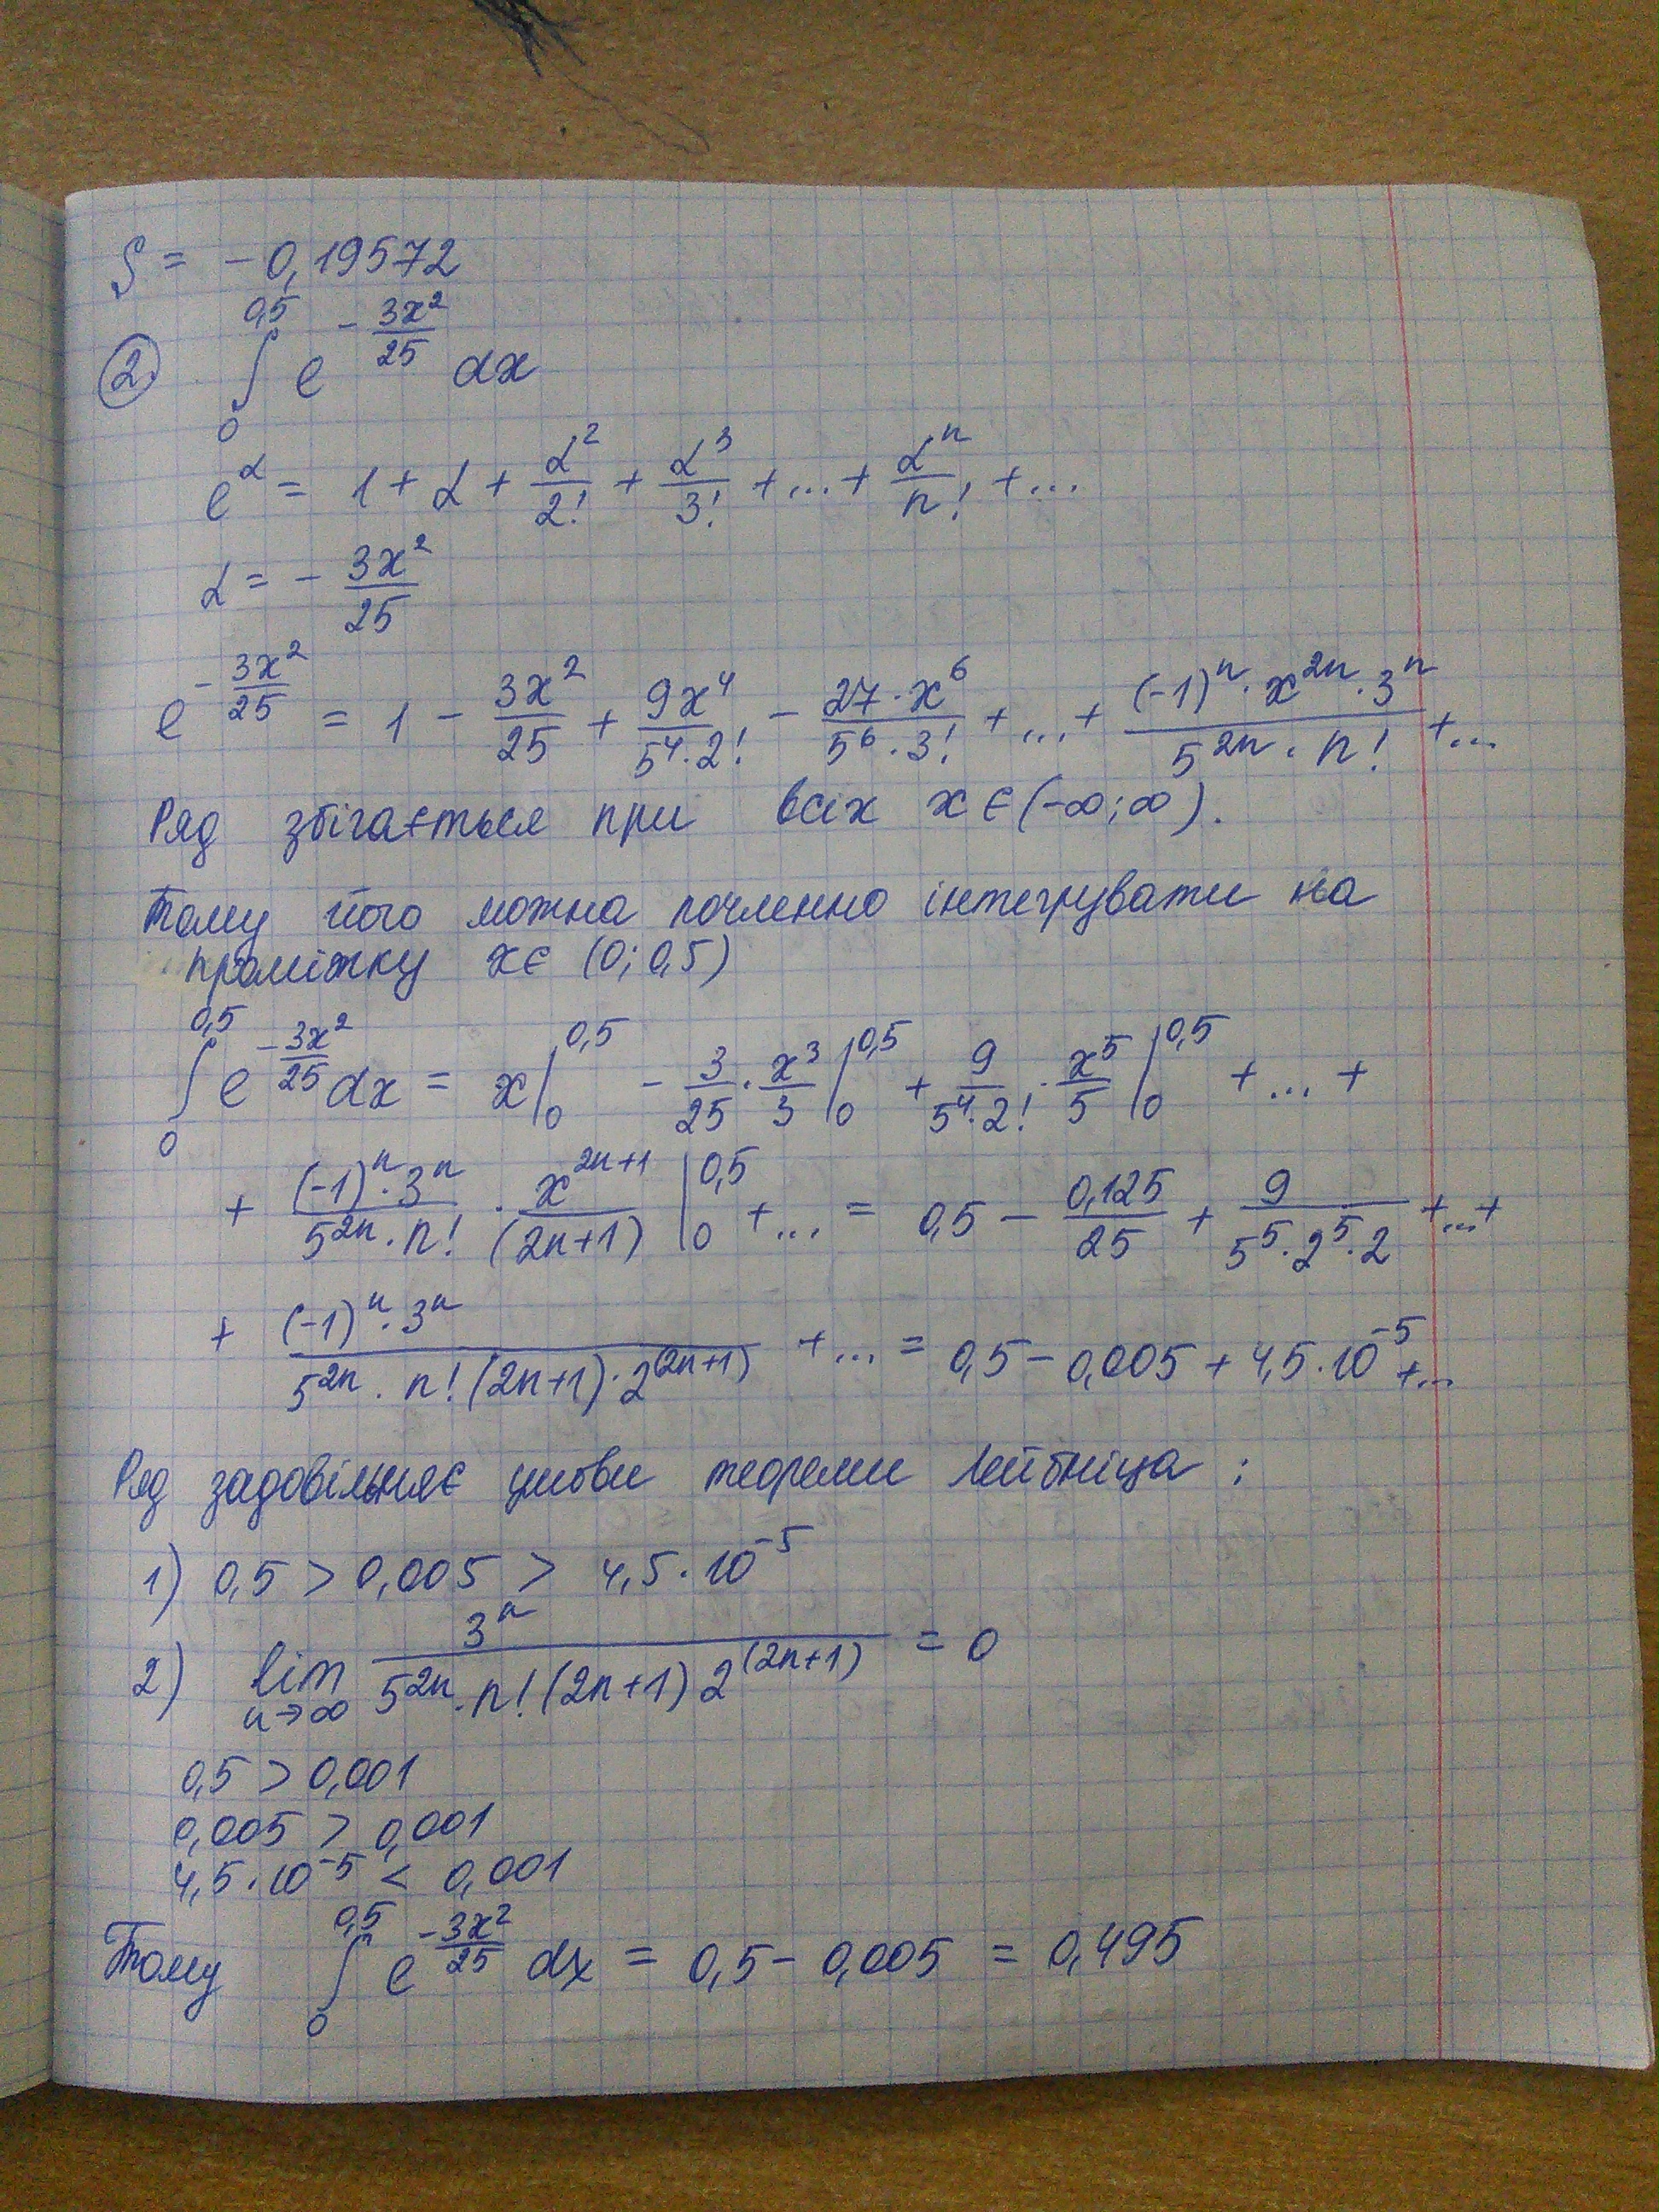 S = - 0,19572
② ∫₀^0,5 e^(-3x²/25) dx
e^α = 1 + α + α²/2! + α³/3! + ... + αⁿ/n! + ...
α = - 3x²/25
e^(-3x²/25) = 1 - 3x²/25 + 9x⁴/(5⁴·2!) - 27·x⁶/(5⁶·3!) + ... + (-1)ⁿ·x²ⁿ·3ⁿ/(5²ⁿ·n!) + ...
Ряд збігається при всіх x є (-∞;∞).
Тому його можна почленно інтегрувати на
проміжку x є (0; 0,5)
∫₀^0,5 e^(-3x²/25) dx = x|₀^0,5 - 3/25 · x³/3 |₀^0,5 + 9/(5⁴·2!) · x⁵/5 |₀^0,5 + ... +
+ (-1)ⁿ·3ⁿ/(5²ⁿ·n!) · x²ⁿ⁺¹/(2n+1) |₀^0,5 + ... = 0,5 - 0,125/25 + 9/(5⁵·2⁵·2) + ... +
+ (-1)ⁿ·3ⁿ/(5²ⁿ·n!(2n+1)·2^(2n+1)) + ... = 0,5 - 0,005 + 4,5·10⁻⁵ + ...
Ряд задовільняє умови теореми Лейбніца :
1) 0,5 > 0,005 > 4,5·10⁻⁵
2) lim n→∞ 3ⁿ/(5²ⁿ·n!(2n+1) 2^(2n+1)) = 0
0,5 > 0,001
0,005 > 0,001
4,5·10⁻⁵ < 0,001
Тому ∫₀^0,5 e^(-3x²/25) dx = 0,5 - 0,005 = 0,495